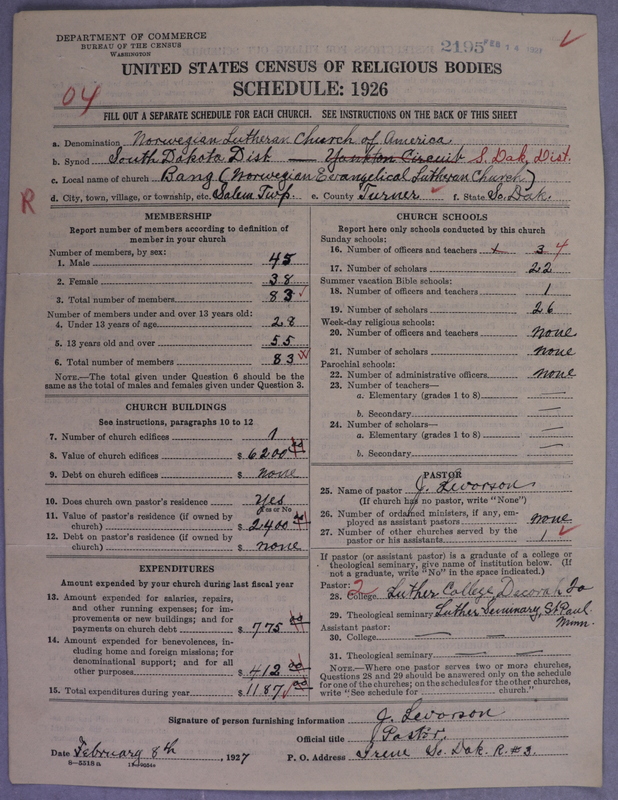 DEPARTMENT OF COMMERCE
BUREAU OF THE CENSUS
WASHINGTON
2195 FEB 14 1927
UNITED STATES CENSUS OF RELIGIOUS BODIES
SCHEDULE: 1926
04
FILL OUT A SEPARATE SCHEDULE FOR EACH CHURCH. SEE INSTRUCTIONS ON THE BACK OF THIS SHEET
a. Denomination Norwegian Lutheran Church of America
b. Synod South Dakota Dist — Yankton Circuit S. Dak, Dist.
c. Local name of church Bang (Norwegian Evangelical Lutheran Church)
R
d. City, town, village, or township, etc. Salem Twp. e. County Turner f. State So. Dak.
MEMBERSHIP
Report number of members according to definition of member in your church
Number of members, by sex:
1. Male 45
2. Female 38
3. Total number of members 83
Number of members under and over 13 years old:
4. Under 13 years of age 28
5. 13 years old and over 55
6. Total number of members 83
NOTE.—The total given under Question 6 should be the
same as the total of males and females given under Question 3.
CHURCH BUILDINGS
See instructions, paragraphs 10 to 12
7. Number of church edifices 1
8. Value of church edifices $ 6200 00
9. Debt on church edifices $ none
10. Does church own pastor's residence Yes
(Yes or No)
11. Value of pastor's residence (if owned by
church) $ 2400 00
12. Debt on pastor's residence (if owned by
church) $ none
EXPENDITURES
Amount expended by your church during last fiscal year
13. Amount expended for salaries, repairs,
and other running expenses; for im-
provements or new buildings; and for
payments on church debt $ 775 00
14. Amount expended for benevolences, in-
cluding home and foreign missions; for
denominational support; and for all
other purposes $ 412 00
15. Total expenditures during year $ 1187 00
CHURCH SCHOOLS
Report here only schools conducted by this church
Sunday schools:
16. Number of officers and teachers + 3 4
17. Number of scholars 22
Summer vacation Bible schools:
18. Number of officers and teachers 1
19. Number of scholars 26
Week-day religious schools:
20. Number of officers and teachers none
21. Number of scholars none
Parochial schools:
22. Number of administrative officers none
23. Number of teachers—
a. Elementary (grades 1 to 8) —
b. Secondary —
24. Number of scholars—
a. Elementary (grades 1 to 8) —
b. Secondary —
PASTOR
25. Name of pastor J. Levorson
(If church has no pastor, write "None")
26. Number of ordained ministers, if any, em-
ployed as assistant pastors none
27. Number of other churches served by the
pastor or his assistants 1
If pastor (or assistant pastor) is a graduate of a college or
theological seminary, give name of institution below. (If
not a graduate, write "No" in the space indicated.)
Pastor: 2
28. College Luther College, Decorah Ia
29. Theological seminary Luther Seminary, St. Paul Minn.
Assistant pastor:
30. College — —
31. Theological seminary — —
NOTE.—Where one pastor serves two or more churches,
Questions 28 and 29 should be answered only on the schedule
for one of the churches; on the schedules for the other churches,
write "See schedule for church."
Signature of person furnishing information J. Levorson
Official title Pastor
Date February 8th, 1927 P. O. Address Irene So. Dak. R. #3.
8—5518 a